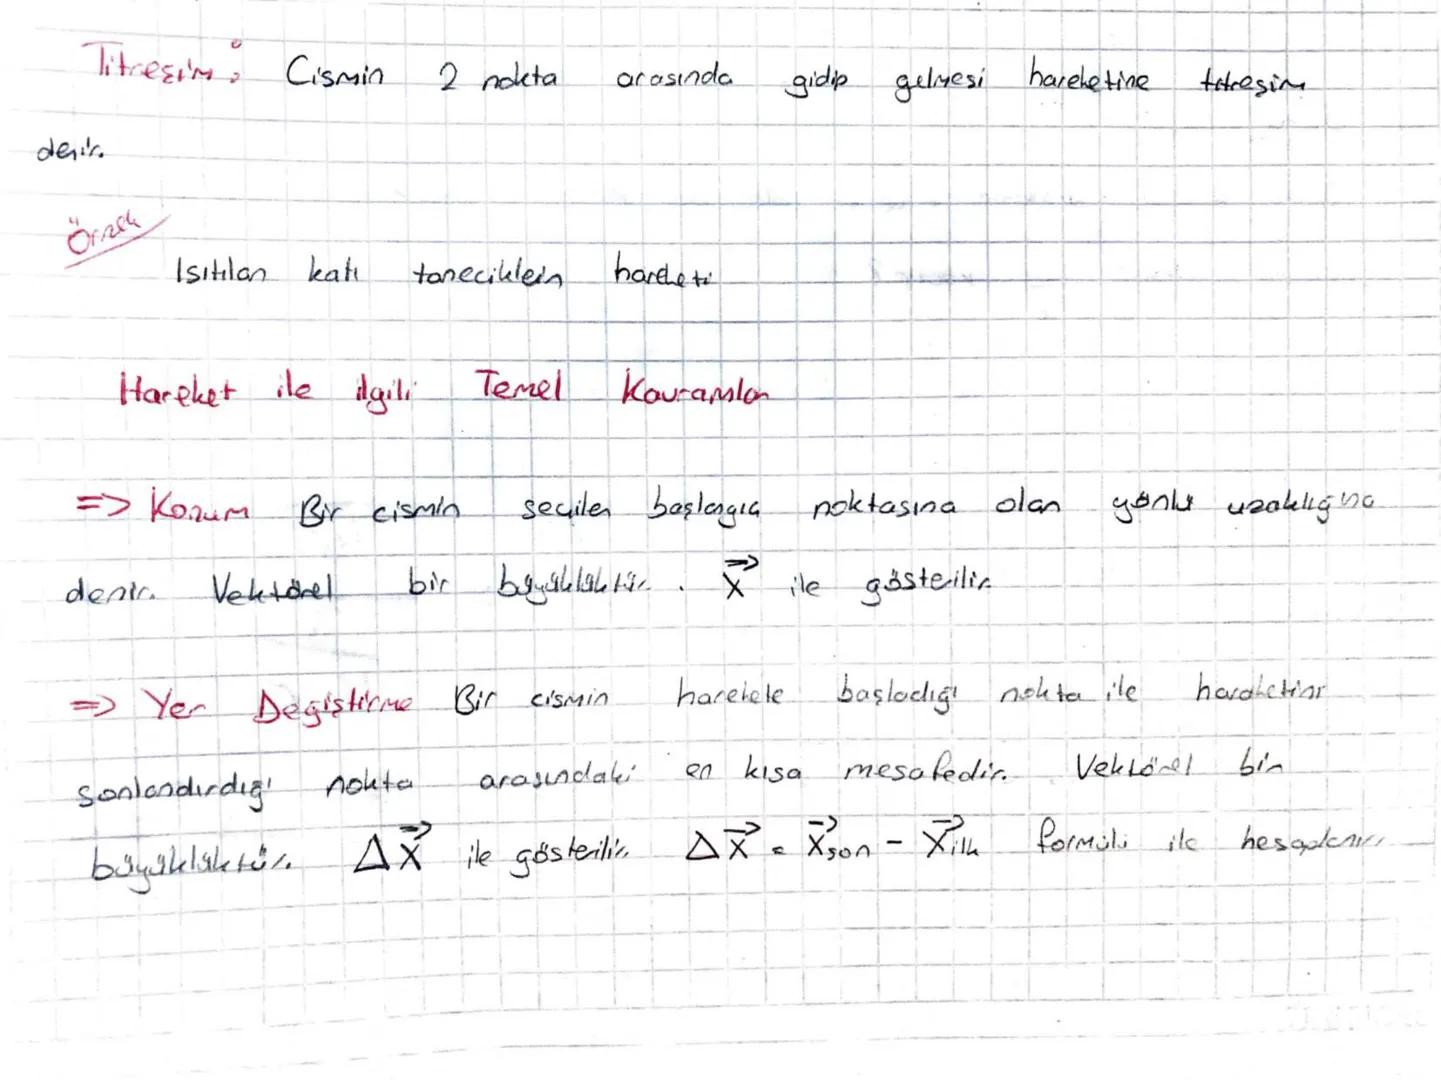 Titreşim: Cismin 2 nokta arasında gidip gelmesi hareketine titreşim
denir.
Örnek
Isıtılan katı taneciklerin hareketi
Hareket ile ilgili Temel Kavramlar
=> Konum Bir cismin seçilen başlangıç noktasına olan yönlü uzaklığına
denir. Vektörel bir büyüklüktür. X⃗ ile gösterilir
=> Yer Değiştirme Bir cismin harekete başladığı nokta ile hareketini
sonlandırdığı nokta arasındaki en kısa mesafedir. Vektörel bir
büyüklüktür. ΔX⃗ ile gösterilir. ΔX⃗ = X⃗son - X⃗ilk formülü ile hesaplanır.